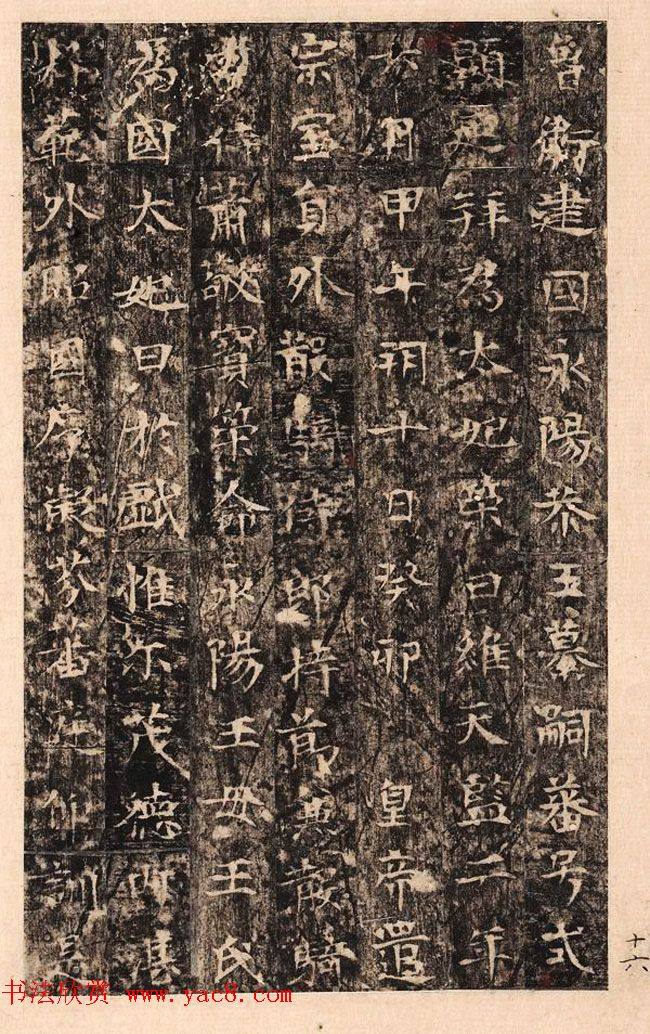 魯衛建國永陽恭王纂嗣蕃号式
顯迺拜為太妃策曰維天監二年
六月甲午朔十日癸卯皇帝遣
宗室員外散騎侍郎持節兼散騎
常侍蕭敬寶策命永陽王母王氏
為國太妃曰於戲惟尔茂德內湛
粹範外昭國序凝芬蕃庭仰訓是
十六
书法欣赏 www.yac8.com